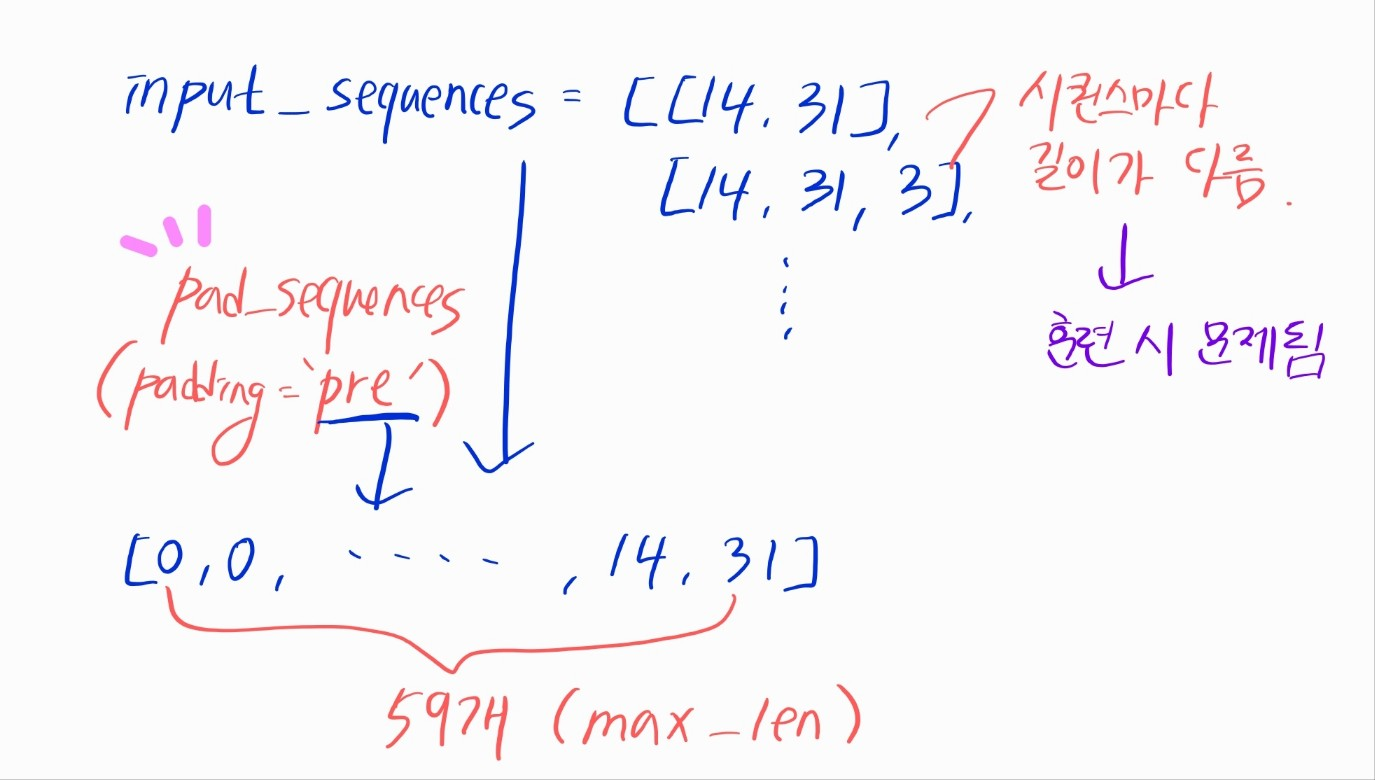 input_sequences = [[14, 31],
[14, 31, 3],
시퀀스마다
길이가 다름.
훈련 시 문제됨
pad_sequences
(padding='pre')
[0, 0, ····, 14, 31]
597개 (max_len)